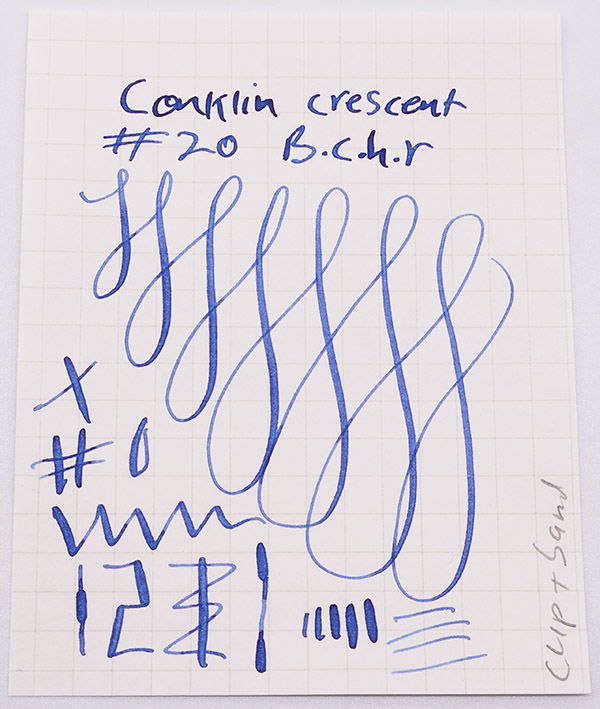 Conklin crescent
#20 B.c.h.r
X
# 0
CLIP + Sand